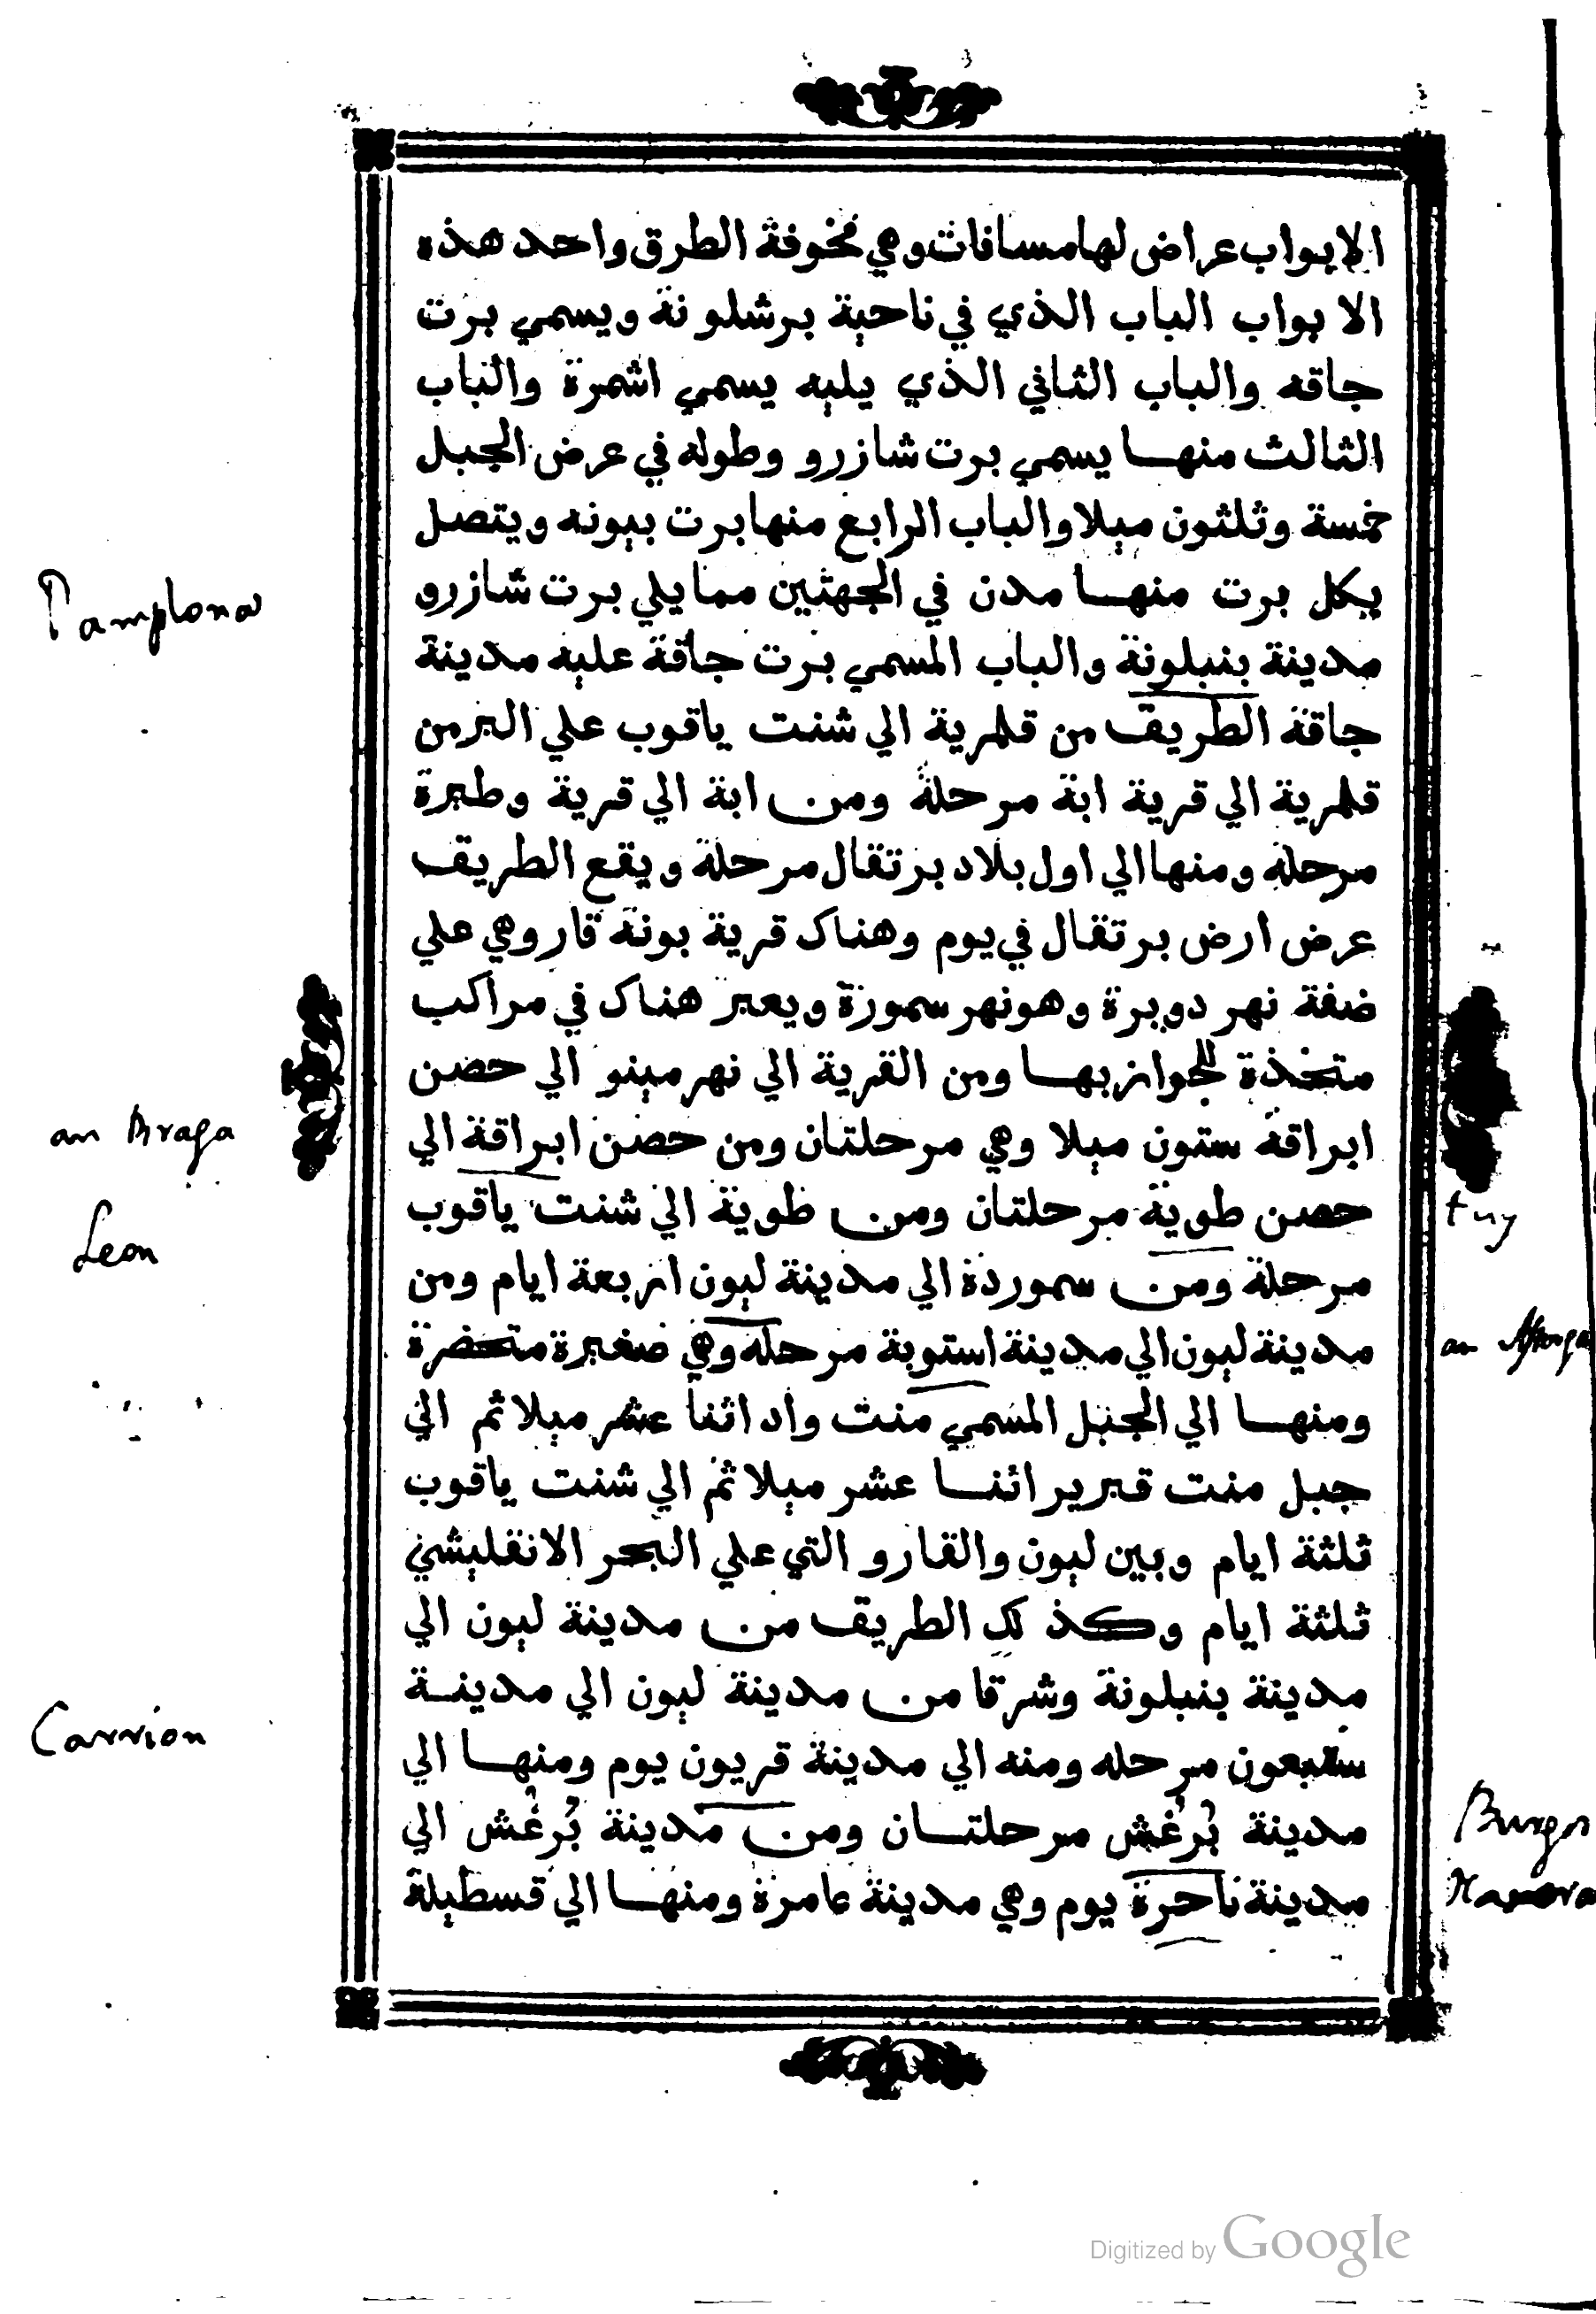 الابواب عراض لها مسافات وهي مخوفة الطرق واحد هذه
الابواب الباب الذي في ناحية برشلونة ويسمي برت
جاقه والباب الثاني الذي يليه يسمي اشمرة والباب
الثالث منها يسمي برت شازرو وطوله في عرض الجبل
خمسة وثلثون ميلا والباب الرابع منها برت بيونه ويتصل
بكل برت منها مدن في الجهتين مما يلي برت شازرو
Pamplona
مدينة بنبلونة والباب المسمي برت جاقة عليه مدينة
جاقة الطريق من قلمرية الي شنت ياقوب علي البر من
قلمرية الي قرية ابة مرحلة ومن ابة الي قرية وطيرة
مرحلة ومنها الي اول بلاد برتقال مرحلة ويقع الطريق
عرض ارض برتقال في يوم وهناك قرية بونة قار وهي علي
ضفة نهر دويرة وهو نهر سمورة ويعبر هناك في مراكب
متخذة للجواز بها ومن القرية الي نهر مينو الي حصن
ابراقة ستون ميلا وهي مرحلتان ومن حصن ابراقة الي
an Braga
حصن طوية مرحلتان ومن طوية الي شنت ياقوب
tuy
Leon
مرحلة ومن سموردة الي مدينة ليون اربعة ايام ومن
مدينة ليون الي مدينة استوبة مرحله وهي صغيرة متحضرة
an
ومنها الي الجبل المسمي منت واد اثنا عشر ميلا ثم الي
جبل منت قبرير اثنا عشر ميلا ثم الي شنت ياقوب
ثلثة ايام وبين ليون والقارو التي علي البحر الانقليشي
ثلثة ايام وكذلك الطريق من مدينة ليون الي
مدينة بنبلونة وشرقا من مدينة ليون الي مدينة
Carrion
مرحله ومنه الي مدينة قريون يوم ومنها الي
مدينة بُرغُش مرحلتان ومن مدينة بُرغُش الي
Burgos
مدينة ناحرة يوم وهي مدينة عامرة ومنها الي قسطيلة
Digitized by Google